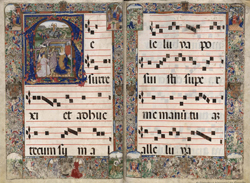 R e
surre
xi et adhuc
tecum su m a
le lu ya po
sui sti supe r
me manū tu a
alle lu ya